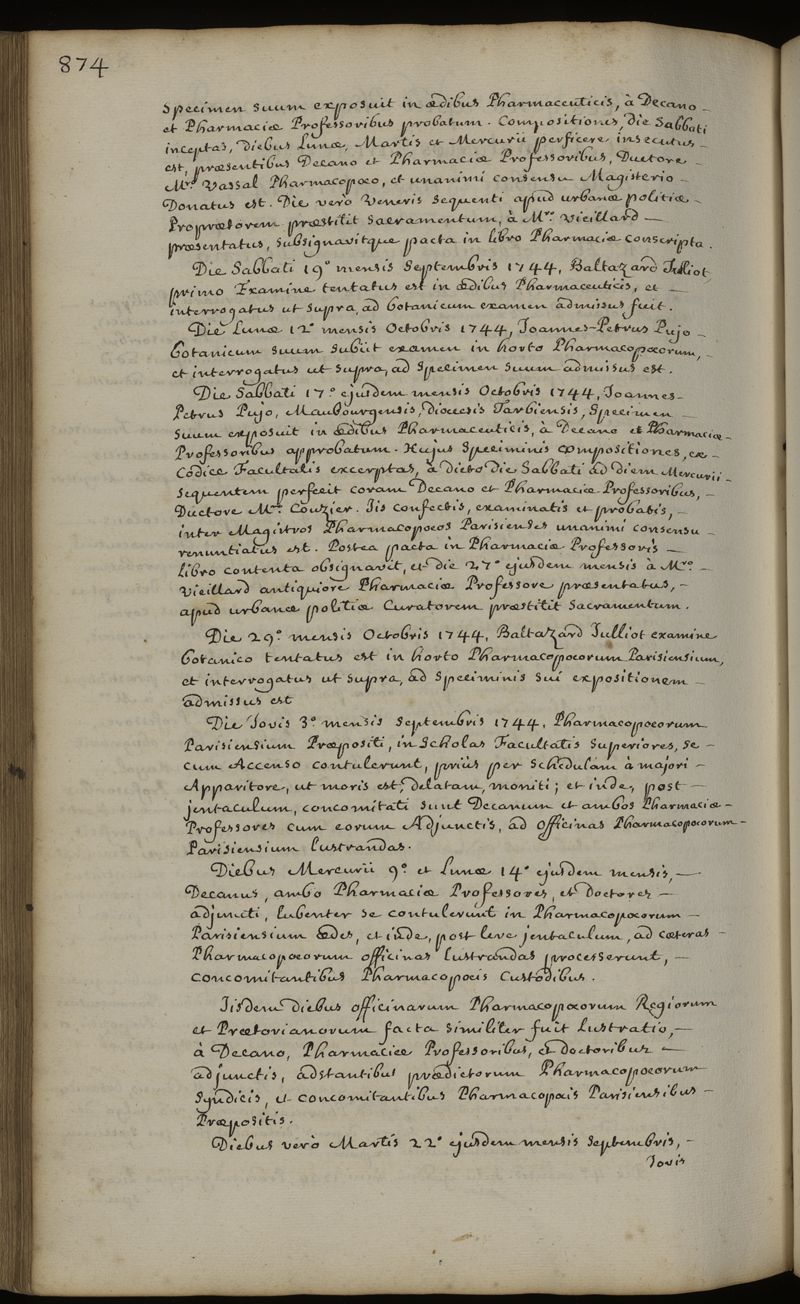 874
specimen suum exposuit in ædibus Pharmaceuticis, à Decano –
et Pharmaciæ Professoribus probatum. Compositiones, die Sabbati
inceptas, Diebus Lunæ, Martis et Mercurii perficere insecutus –
est, præsentibus Decano et Pharmaciæ Professoribus, Ductore –
Mro. Vassal Pharmacopœo, et unanimi consensu Magisterio –
Donatus est. Die verò Veneris sequenti apud urbanæ politiæ –
Proprætorem præstitit sacramentum, à Mro. Vieillard —
præsentatus, subsignavitque pacta in libro Pharmaciæ conscripta.
Die Sabbati 19º mensis Septembris 1744, Baltazard Julliot
primo Examine tentatus est in ædibus Pharmaceuticis, et —
interrogatus ut supra, ad botanicum examen admissus fuit.
Die Lunæ 12º mensis Octobris 1744, Joannes-Petrus Pujo –
Botanicum suum subiit examen in horto Pharmacopœorum, –
et interrogatus ut supra, ad specimen suum admissus est.
Die Sabbati 17º ejusdem mensis Octobris 1744, Joannes-
Petrus Pujo, Maubourgensis, diœcesis Tarbiensis, Specimen —
suum exposuit in ædibus Pharmaceuticis, à Decano et Pharmaciæ –
Professoribus approbatum. Hujus speciminis compositiones, ex –
Codice Facultatis excerptas, à dicto die Sabbati ad diem Mercurii –
sequentem perfecit coram Decano et Pharmaciæ Professoribus, –
Ductore Mro. Couzier. Iis confectis, examinatis et probatis, –
inter Magistros Pharmacopœos Parisienses unanimi consensu –
renuntiatus est. Postea pacta in Pharmaciæ Professoris —
libro contenta obsignavit, et die 27º ejusdem mensis à Mro. –
Vieillard antiquiore Pharmaciæ Professore præsentatus, –
apud urbanæ politiæ Curatorem præstitit sacramentum.
Die 29º mensis Octobris 1744, Baltazard Julliot examine
botanico tentatus est in horto Pharmacopœorum Parisiensium,
et interrogatus ut supra, ad speciminis sui expositionem –
admissus est
Die Jovis 3º mensis Septembris 1744, Pharmacopœorum
Parisiensium Præpositi, in Scholas Facultatis superiores, se –
cum Accenso contulerunt, priùs per schedulam à majori –
Apparitore, ut moris est, delatam, moniti; et inde, post —
jentaculum, concomitati sunt Decanum et ambos Pharmaciæ –
Professores cum eorum Adjunctis, ad officinas Pharmacopœorum –
Parisiensium lustrandas.
Diebus Mercurii 9º et Lunæ 14º ejusdem mensis, —
Decanus, ambo Pharmaciæ Professores, et doctores —
adjuncti, lubenter se contulerunt in Pharmacopœorum –
Parisiensium ædes, et inde, post leve jentaculum, ad cæteras –
Pharmacopœorum officinas lustrandas processerunt, –
concomitantibus Pharmacopœis Custodibus.
Iisdem diebus officinarum Pharmacopœorum Regiorum
et Prætorianorum facta similiter fuit lustratio, –
à Decano, Pharmaciæ Professoribus, et doctoribus —
adjunctis, adstantibus prædictorum Pharmacopœorum
Syndicis, et concomitantibus Pharmacopæis Parisiensibus –
Præpositis.
Diebus verò Martis 22º ejusdem mensis Septembris, –
Jovis